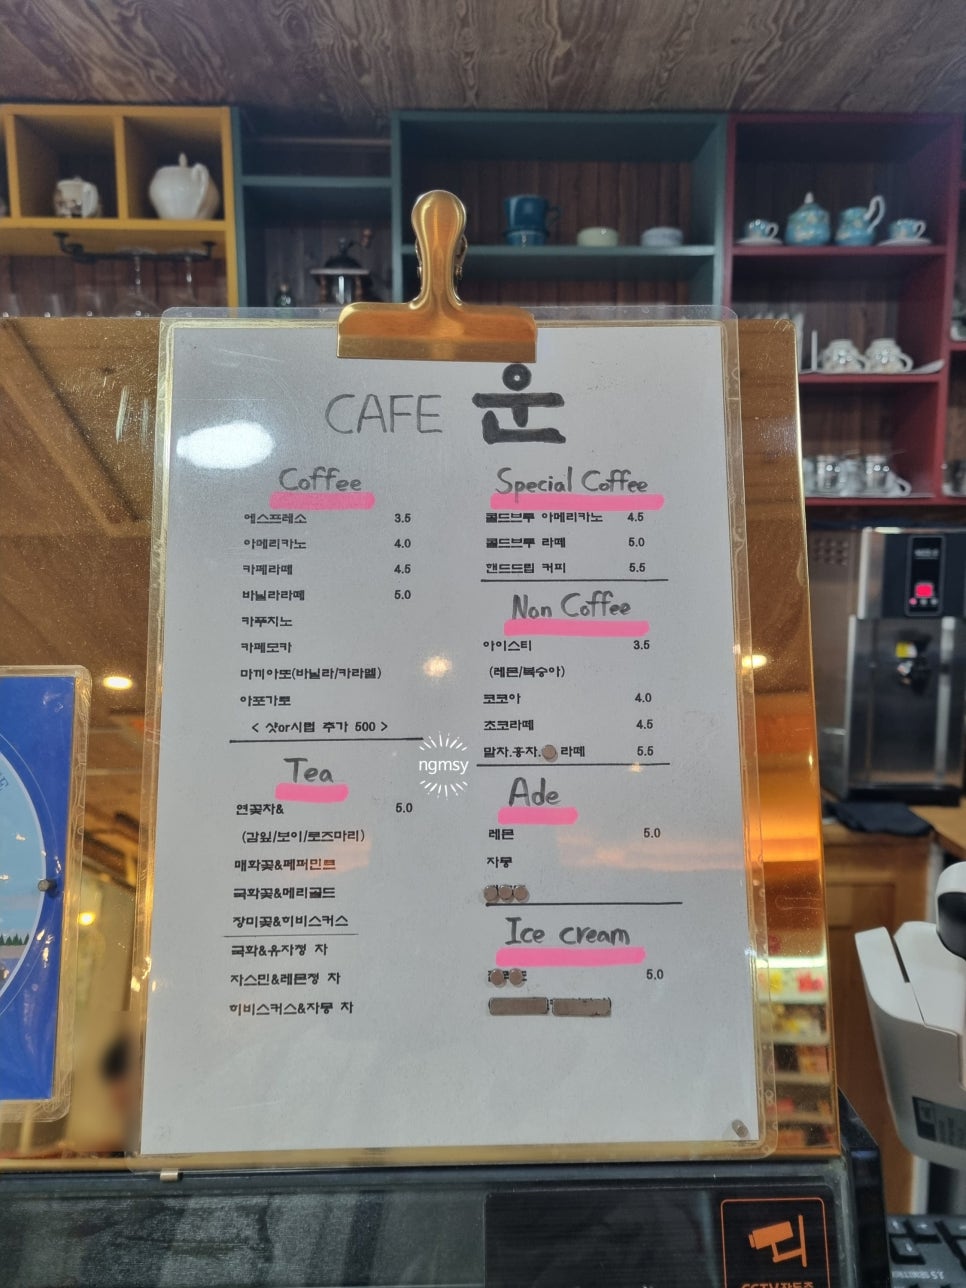 CAFE 운
Coffee
에스프레소 3.5
아메리카노 4.0
카페라떼 4.5
바닐라라떼 5.0
카푸치노
카페모카
마끼아또(바닐라/카라멜)
아포가토
< 샷or시럽 추가 500 >
Tea
연꽃차& 5.0
(감잎/보이/로즈마리)
매화꽃&페퍼민트
국화꽃&메리골드
장미꽃&히비스커스
국화&유자청 차
자스민&레몬청 차
히비스커스&자몽 차
Special Coffee
콜드브루 아메리카노 4.5
콜드브루 라떼 5.0
핸드드립 커피 5.5
Non Coffee
아이스티 3.5
(레몬/복숭아)
코코아 4.0
초코라떼 4.5
말차.홍차. 라떼 5.5
Ade
레몬 5.0
자몽
Ice cream
5.0
ngmsy